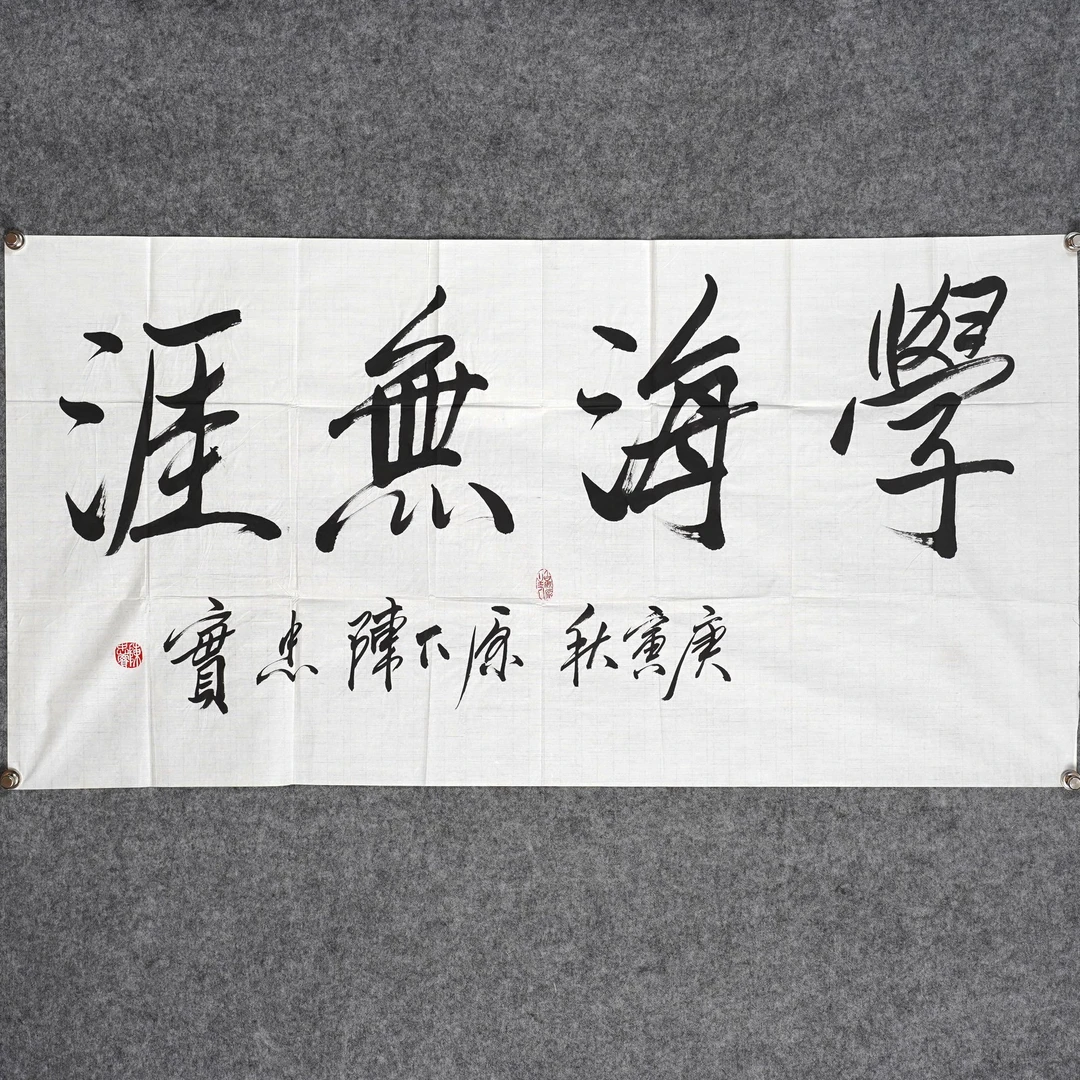 學海無涯
庚寅秋 原下陳忠實